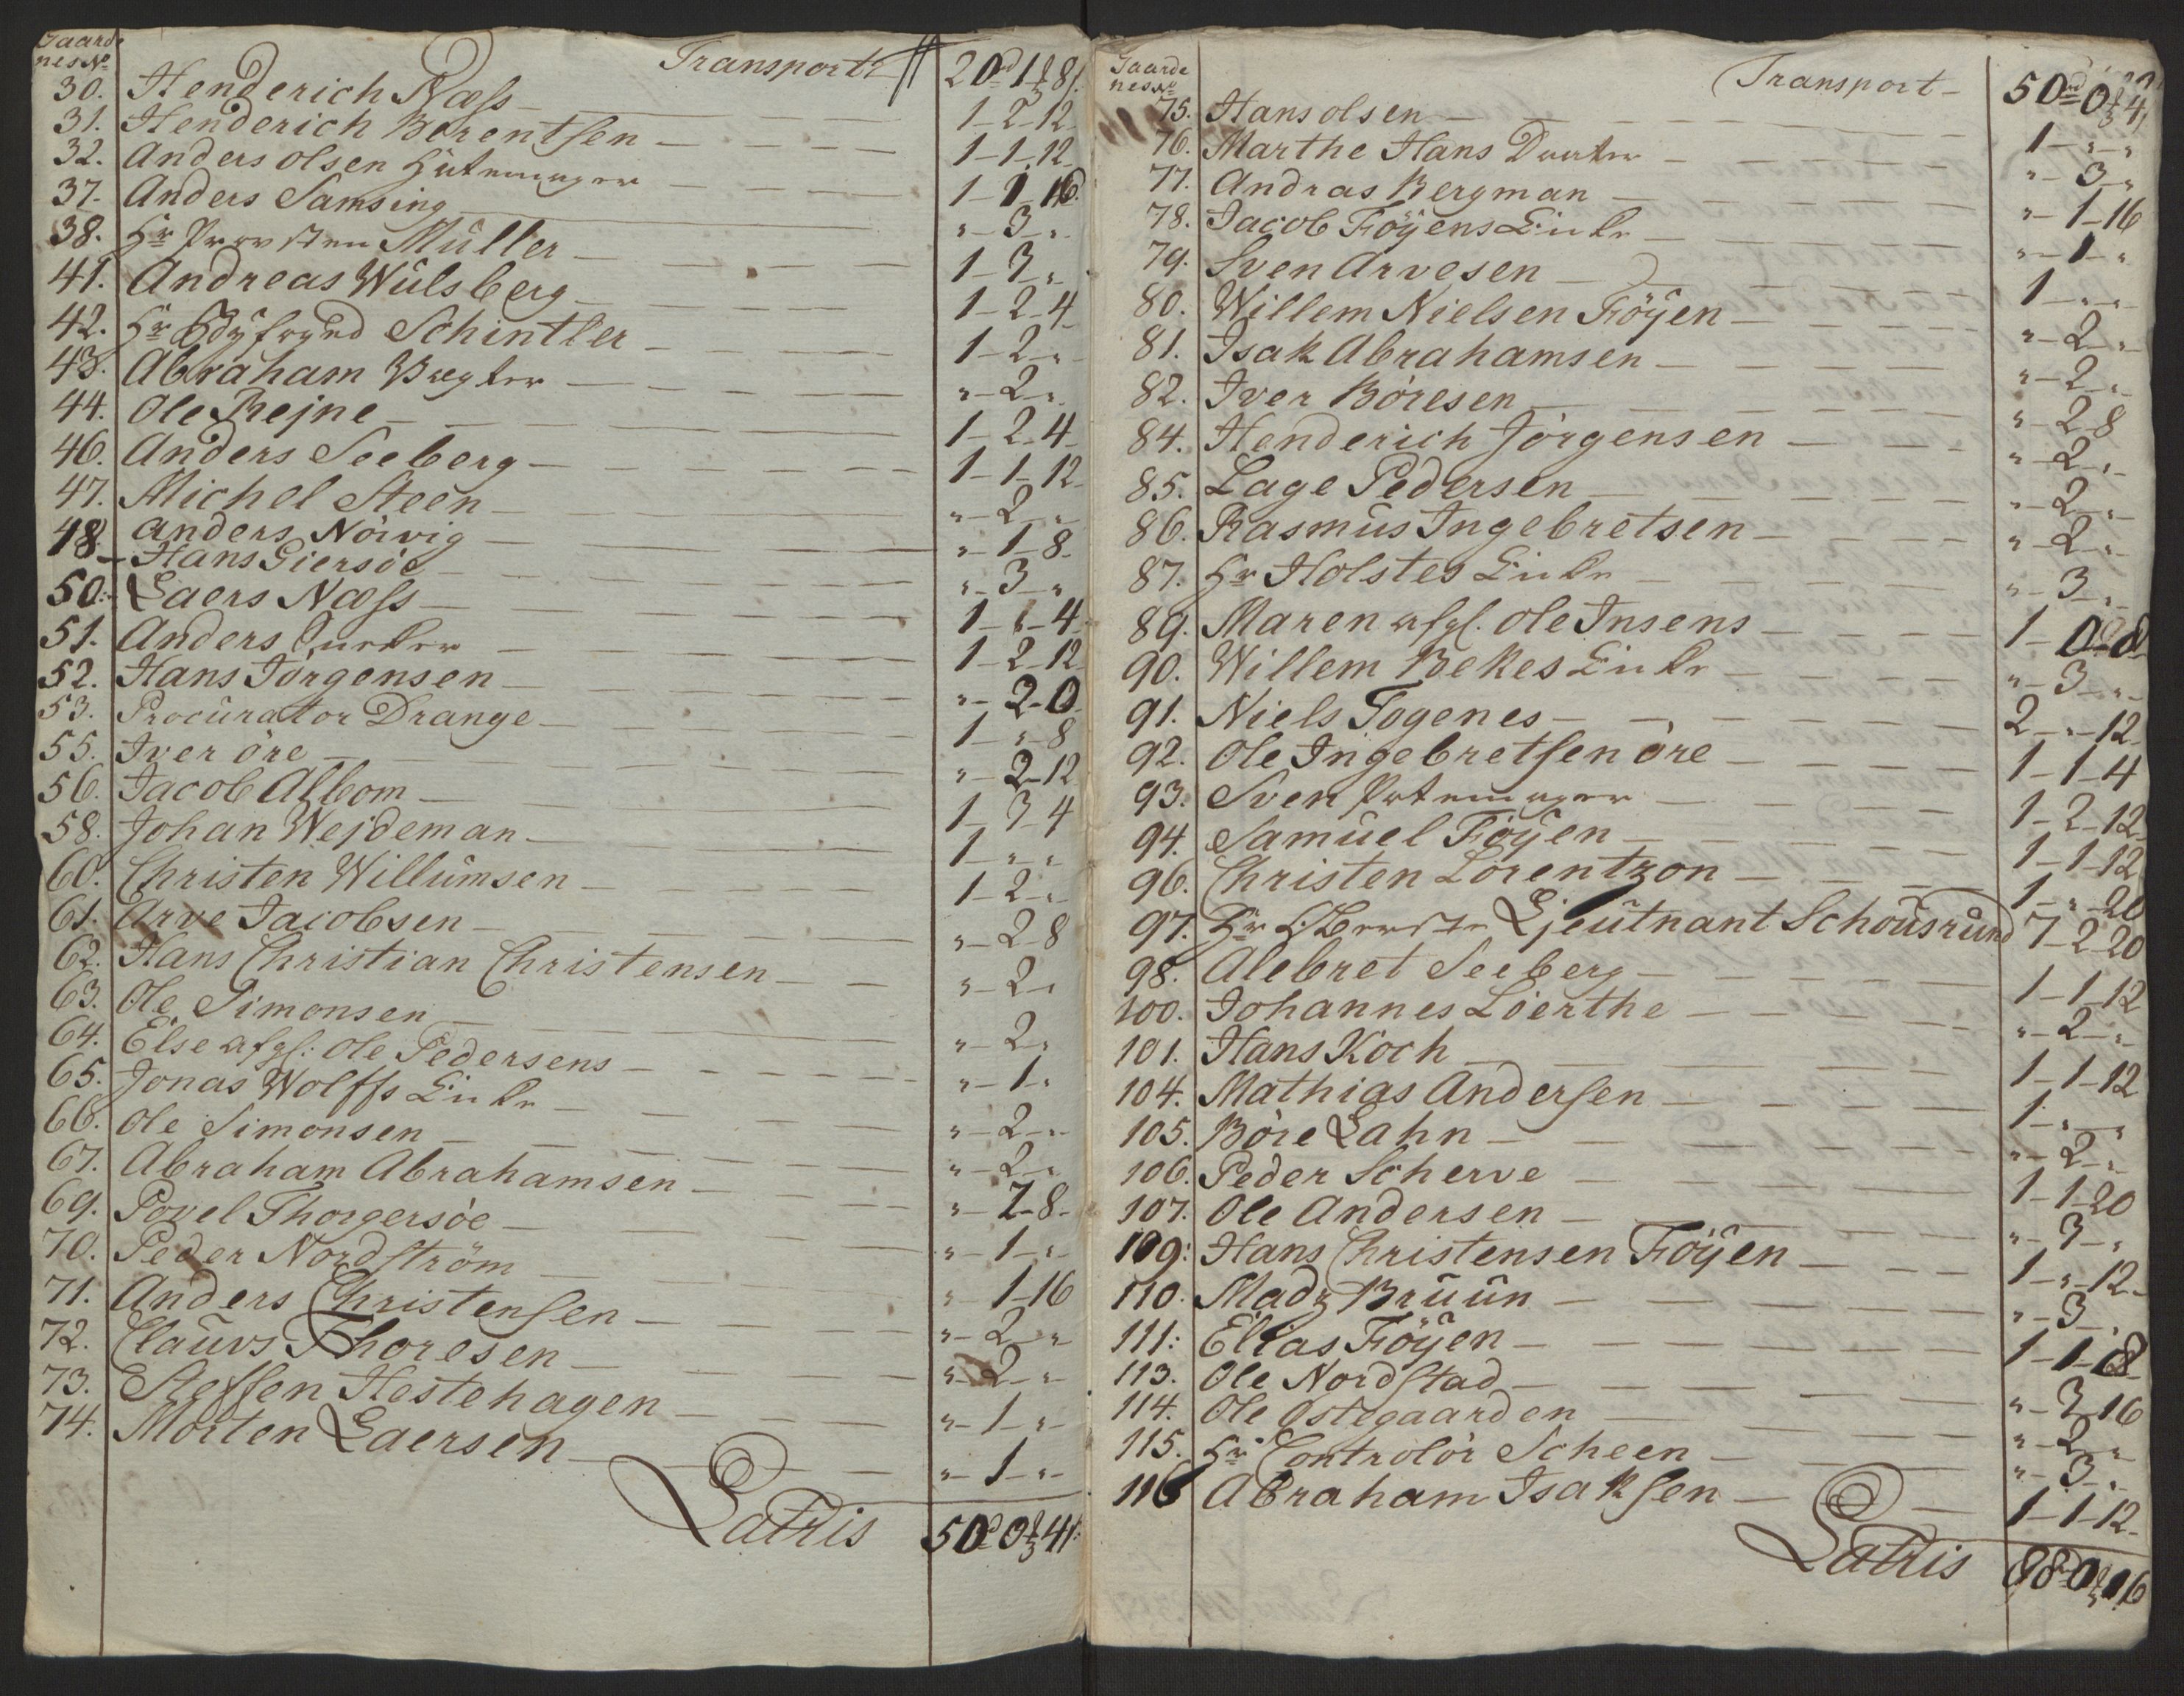 Gaarde
nes No
Transport 20rd 1 8
30. Henderich Næss 1-2-12
31. Henderich Berentsen 1-1-12
32. Anders Olsen 1-1-16
37. Anders Samsing "-3-"
38. Hr Provsten Müller 1-3-"
41. Andreas Wülsberg 1-2-4
42. Hr Schintler 1-2-"
43. Abraham "-2-"
44. Ole Rejne 1-2-4
46. Anders Seeberg 1-1-12
47. Michel Steen "-2-"
48. Anders Nörvig "-1-8
- Hans Giersöe "-3-"
50. Laers Næss 1-"-4
51. Anders 1-2-12
52. Hans Jörgensen "-2-0
53. Procürator Drange 1-"-8
55. Iver öre "-2-12
56. Jacob Albom 1-3-4
58. Johan Wejdeman 1-"-"
60. Christen Willümsen 1-2-"
61. Arve Jacobsen "-2-8
62. Hans Christian Christensen "-2-"
63. Ole Simonsen "-2-"
64. Else afgl: Ole Pedersens "-1-"
65. Jonas Wolffs Enke "-2-"
66. Ole Simonsen "-2-"
67. Abraham Abrahamsen "-2-8
69. Povel Thorgersöe "-1-"
70. Peder Nordström "-1-16
71. Anders Christensen "-2-"
72. Claüvs Thoresen "-2-"
73. Steffen Hestehagen "-1-"
74. Morten Laersen "-1-"
Latris 50rd 0 4
Gaarde
nes No
Transport 50rd 0 4
75. Hans Olsen 1-"-"
76. Marthe Hans "-3-"
77. Andras Bergman "-1-16
78. Jacob Föÿens Enke "-1-"
79. Sven Arvesen 1-"-"
80. Willem Nielsen Föÿen "-2-"
81. Isak Abrahamsen "-2-"
82. Iver Böresen "-2-8
84. Henderich Jörgensen "-2-"
85. Lage Pedersen "-2-"
86. Rasmüs Ingebretsen "-2-"
87. Hr Holstes Enke "-3-"
89. Maren afgl. Ole Insens 1-0-8
90. Willem Bekes Enke "-3-"
91. Niels Togenes 2-"-12
92. Ole Ingebretsen öre 1-1-4
93. Sven 1-2-12
94. Samüel Föÿen 1-1-12
96. Christen Lorentzon 1-"-20
97. Hr Ljeütnant Schoüsründ 7-2-20
98. Alebret Seeberg 1-1-12
100. Johannes Lierthe "-2-"
101. Hans Koch 1-1-12
104. Mathias Andersen 1-"-"
105. Böre Lahn "-2-"
106. Peder Scherve 1-1-20
107. Ole Andersen "-3-"
109: Hans Christensen Föÿen 1-"-12
110. Madz Brüün "-3-"
111: Elias Föÿen 1-1-8
113. Ole Nordstad "-3-16
114. Ole Östegaarden "-2-"
115. Hr Controlör Scheen "-3-"
116 Abraham Isaksen 1-1-12
Latris 98rd 0 16